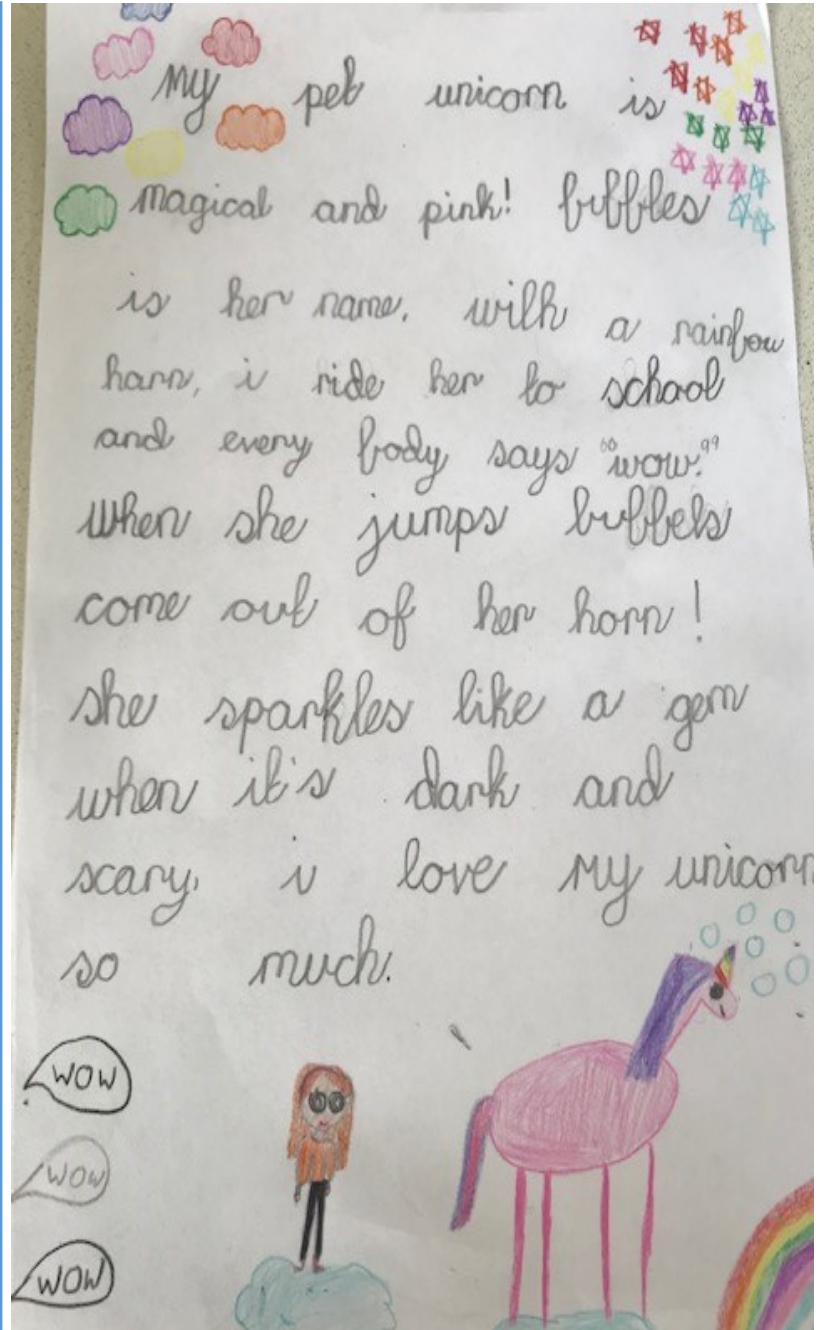 My pet unicorn is
magical and pink! bubbles
is her name. with a rainbow
horn, i ride her to school
and every body says “wow.”
when she jumps bubbels
come out of her horn!
she sparkles like a gem
when it's dark and
scary, i love my unicorn
so much.
WOW
WOW
WOW